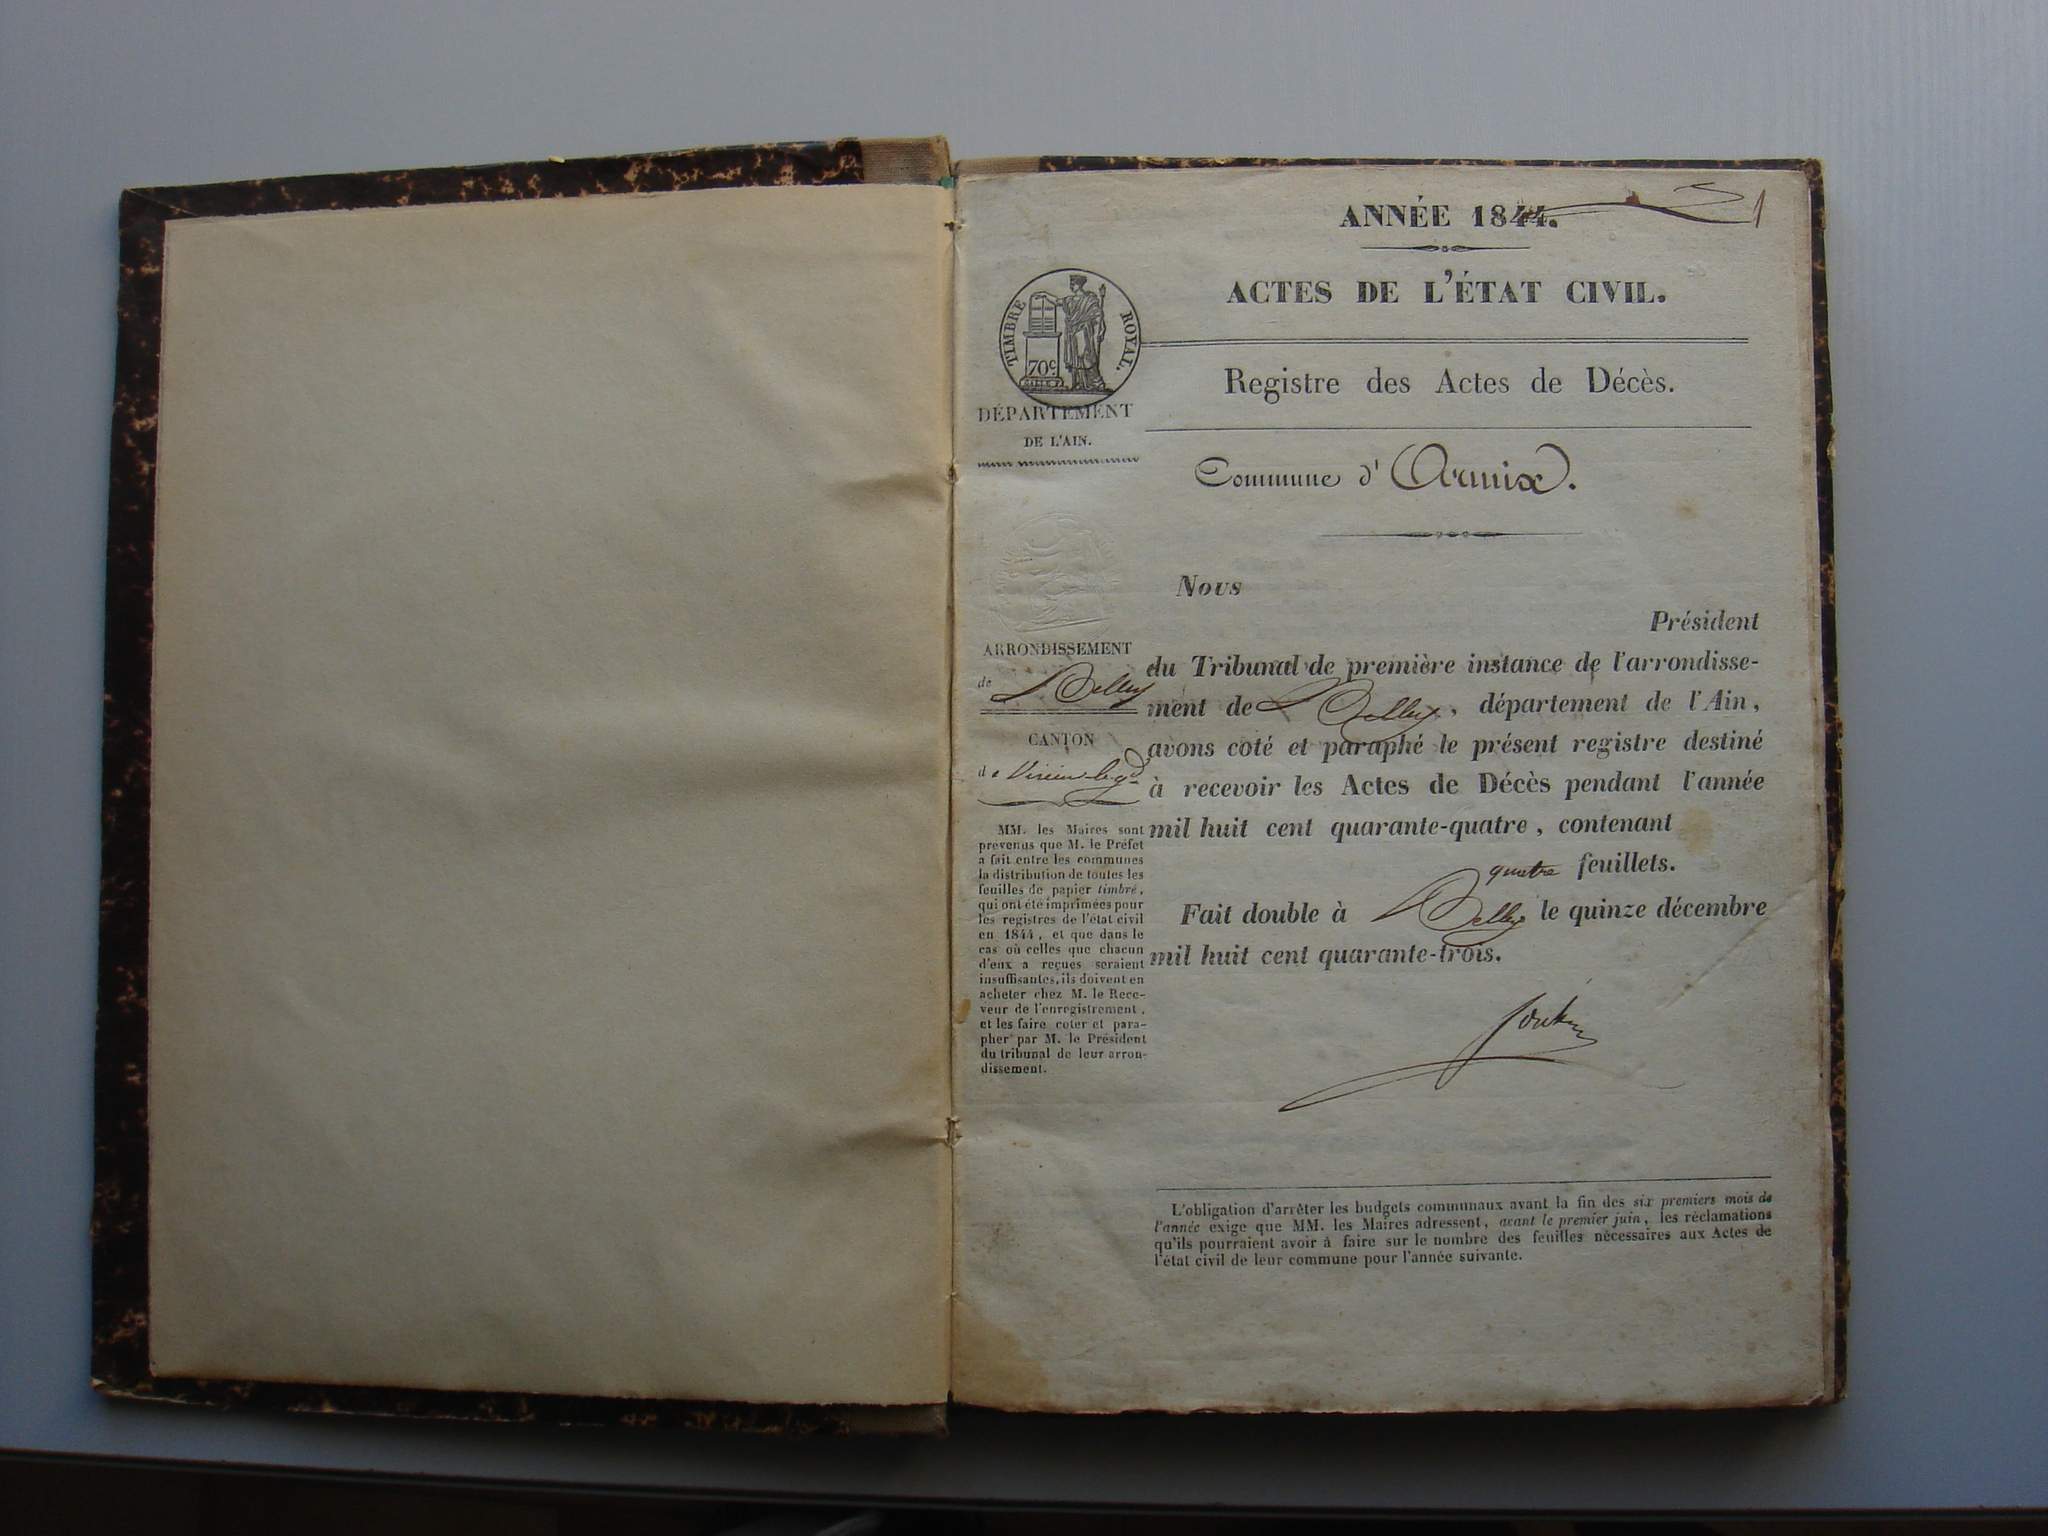 ANNÉE 1844.
1
ACTES DE L'ÉTAT CIVIL.
TIMBRE ROYAL.
70c.
Registre des Actes de Décès.
DÉPARTEMENT
DE L'AIN.
Commune d' Armix.
ARRONDISSEMENT
de Belley
CANTON
de Virieu-le-gd
MM. les Maires sont
prévenus que M. le Préfet
a fait entre les communes
la distribution de toutes les
feuilles de papier timbré,
qui ont été imprimées pour
les registres de l'état civil
en 1844, et que dans le
cas où celles que chacun
d'eux a reçues seraient
insuffisantes, ils doivent en
acheter chez M. le Rece-
veur de l'enregistrement,
et les faire coter et para-
pher par M. le Président
du tribunal de leur arron-
dissement.
Nous
Président
du Tribunal de première instance de l'arrondisse-
ment de Belley, département de l'Ain,
avons coté et paraphé le présent registre destiné
à recevoir les Actes de Décès pendant l'année
mil huit cent quarante-quatre, contenant
quatre feuillets.
Fait double à Belley le quinze décembre
mil huit cent quarante-trois.
L'obligation d'arrêter les budgets communaux avant la fin des six premiers mois de
l'année exige que MM. les Maires adressent, avant le premier juin, les réclamations
qu'ils pourraient avoir à faire sur le nombre des feuilles nécessaires aux Actes de
l'état civil de leur commune pour l'année suivante.